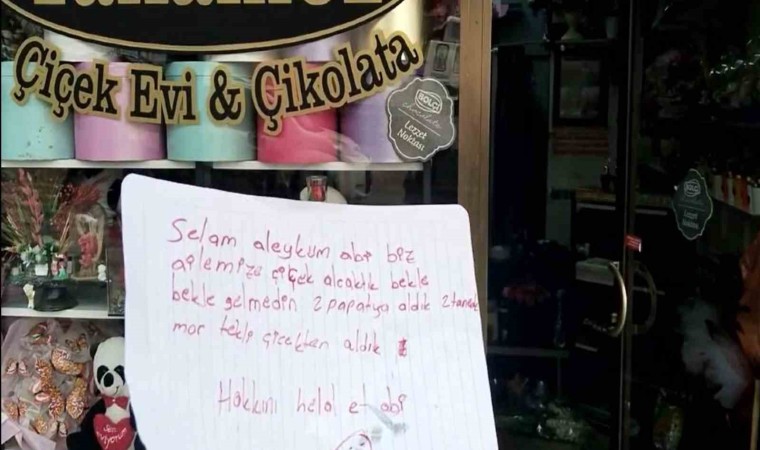 Çiçek Evi & Çikolata
BOLÇİ
chocolate
Lezzet
Noktası
Selam aleykum abi biz
ailemize çiçek alcaktık bekle
bekle gelmedin 2 papatya aldık 2 tane
mor tekli çiçekten aldık
Hakkını helal et abi
Seni
Seviyorum